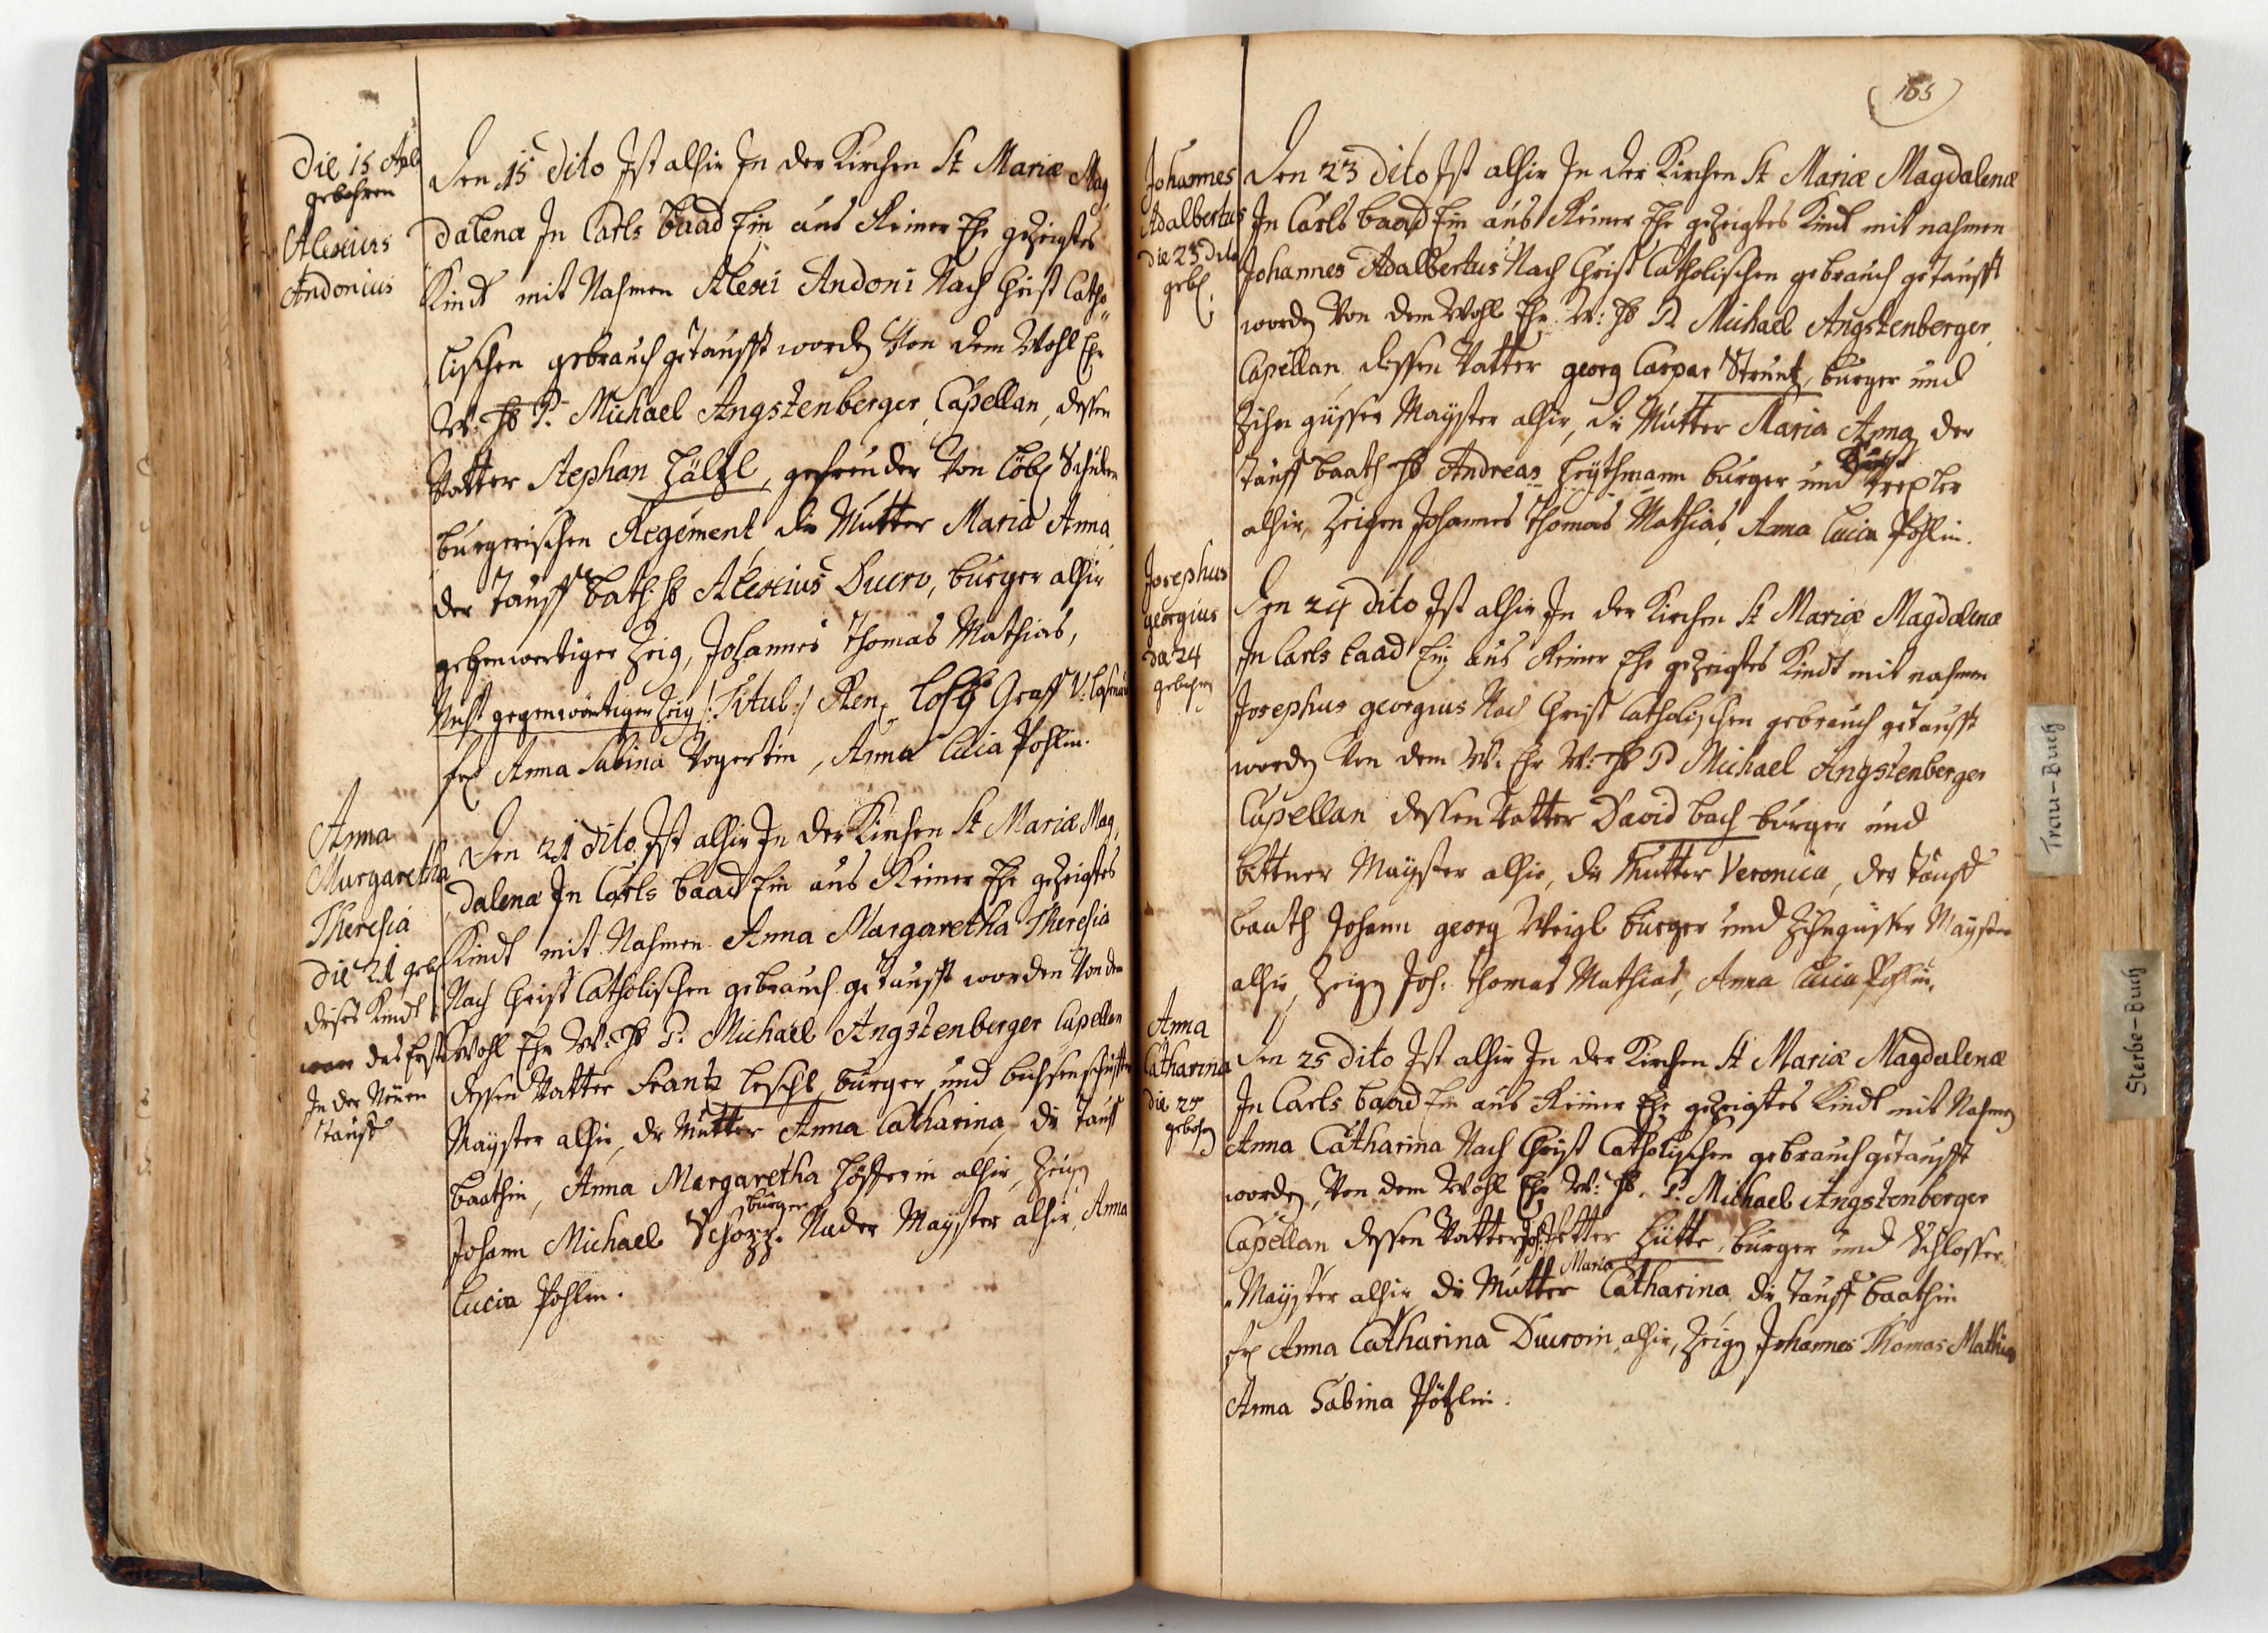 Die 15 Apl
gebohren
Alexius
Andonius
Den 15 dito Ist alhir In der Kirchen St Mariæ Mag
dalenæ In Carls baad Ein aus Reiner Ehe gezeigtes
Kindt mit Nahmen Alexi Andoni Nach Christ Catho„
lischen gebrauch getaufft worden Von dem Wohl Ehr
W: H P. Michael Angstenberger, Capellan, dessen
Vatter Stephan Hältzl, von Löbl Schulen
burgerischen Regement die Mutter Maria Anna
der Tauff Bath: H Alexius Ducro, burger alhir
gegenwertiger Zeig, Johannes Thomas Mathias,
Nechst gegenwörtiger Zeig /: Titul: / Graff V:
Fr Anna Sabina Vogertin, Anna Lucia Pohlin.
Anna
Margaretha
Theresia
Die 21 geb
dises Kindt
war das Erste
In der Neuen
Tauff
Den 21 dito Ist alhir In der Kirchen St Mariæ Mag,
dalenæ In Carls baad Ein aus Reiner Ehe gezeigtes
Kindt mit Nahmen Anna Margaretha Theresia
Nach Christ Catholischen gebrauch getaufft worden Von dem
Wohl Ehr W: H P: Michael Angstenberger Capellan
dessen Vatter Frantz Leschl, burger und bichsenschiffter
Mayster alhir, die Mutter Anna Catharina, die Tauff
baathin, Anna Margaretha Höfferin alhir, Zeigen
Johann Michael Schopp. burger Nader Mayster alhir, Anna
Lucia Pohlin.
165
Johannes
Adalbertus
die 23 dito
gebh
Den 23 dito Ist alhir In der Kirchen St Mariæ Magdalenæ
In Carls baad Ein aus Reiner Ehe gezeigtes Kindt mit nahmen
Johannes Adalbertus Nach Christ Catholischen gebrauch getaufft
worden Von dem Wohl Ehr W: H P. Michael Angstenberger,
Capellan, dessen Vatter georg Caspar Struntz, burger und
Zihn güsser Mayster alhir, die Mutter Maria Anna der
Tauff baath H Andreas Heythmann burger und
alhir, Zeigen Johannes Thomas Mathias, Anna Lucia Pohlin.
Josephus
georgius
Da 24
gebohren
Den 24 dito Ist alhir In der Kirchen St Mariæ Magdalenæ
In Carls baad Ein aus Reiner Ehe gezeigtes Kindt mit nahmen
Josephus georgius Nach Christ Catholischen gebrauch getaufft
worden Von dem W. Ehr W: H P Michael Angstenberger
Capellan dessen Vatter David bach burger und
bittner Mayster alhir, die Mutter Veronica, der Tauff
baath Johann georg Weigl burger und Zihngüsser Mayster
alhir, Zeigen Joh: Thomas Mathias, Anna Lucia Pohlin.
Anna
Catharina
die 25
gebohren
Den 25 dito Ist alhir In der Kirchen St Mariæ Magdalenæ
In Carls baad Ein aus Reiner Ehe gezeigtes Kindt mit Nahmen
Anna Catharina Nach Christ Catholischen gebrauch getaufft
worden, Von dem Wohl Ehr W: H. P. Michael Angstenberger
Capellan dessen Vatter Joh: Petter Hütte, burger und Schlosser„
„Mayster alhir die Mutter Maria Catharina, die Tauff baathin
Fr Anna Catharina Ducroin, alhir, Zeigen Johannes Thomas Mathias
Anna Sabina Pötzlin.
Trau-Buch
Sterbe-Buch